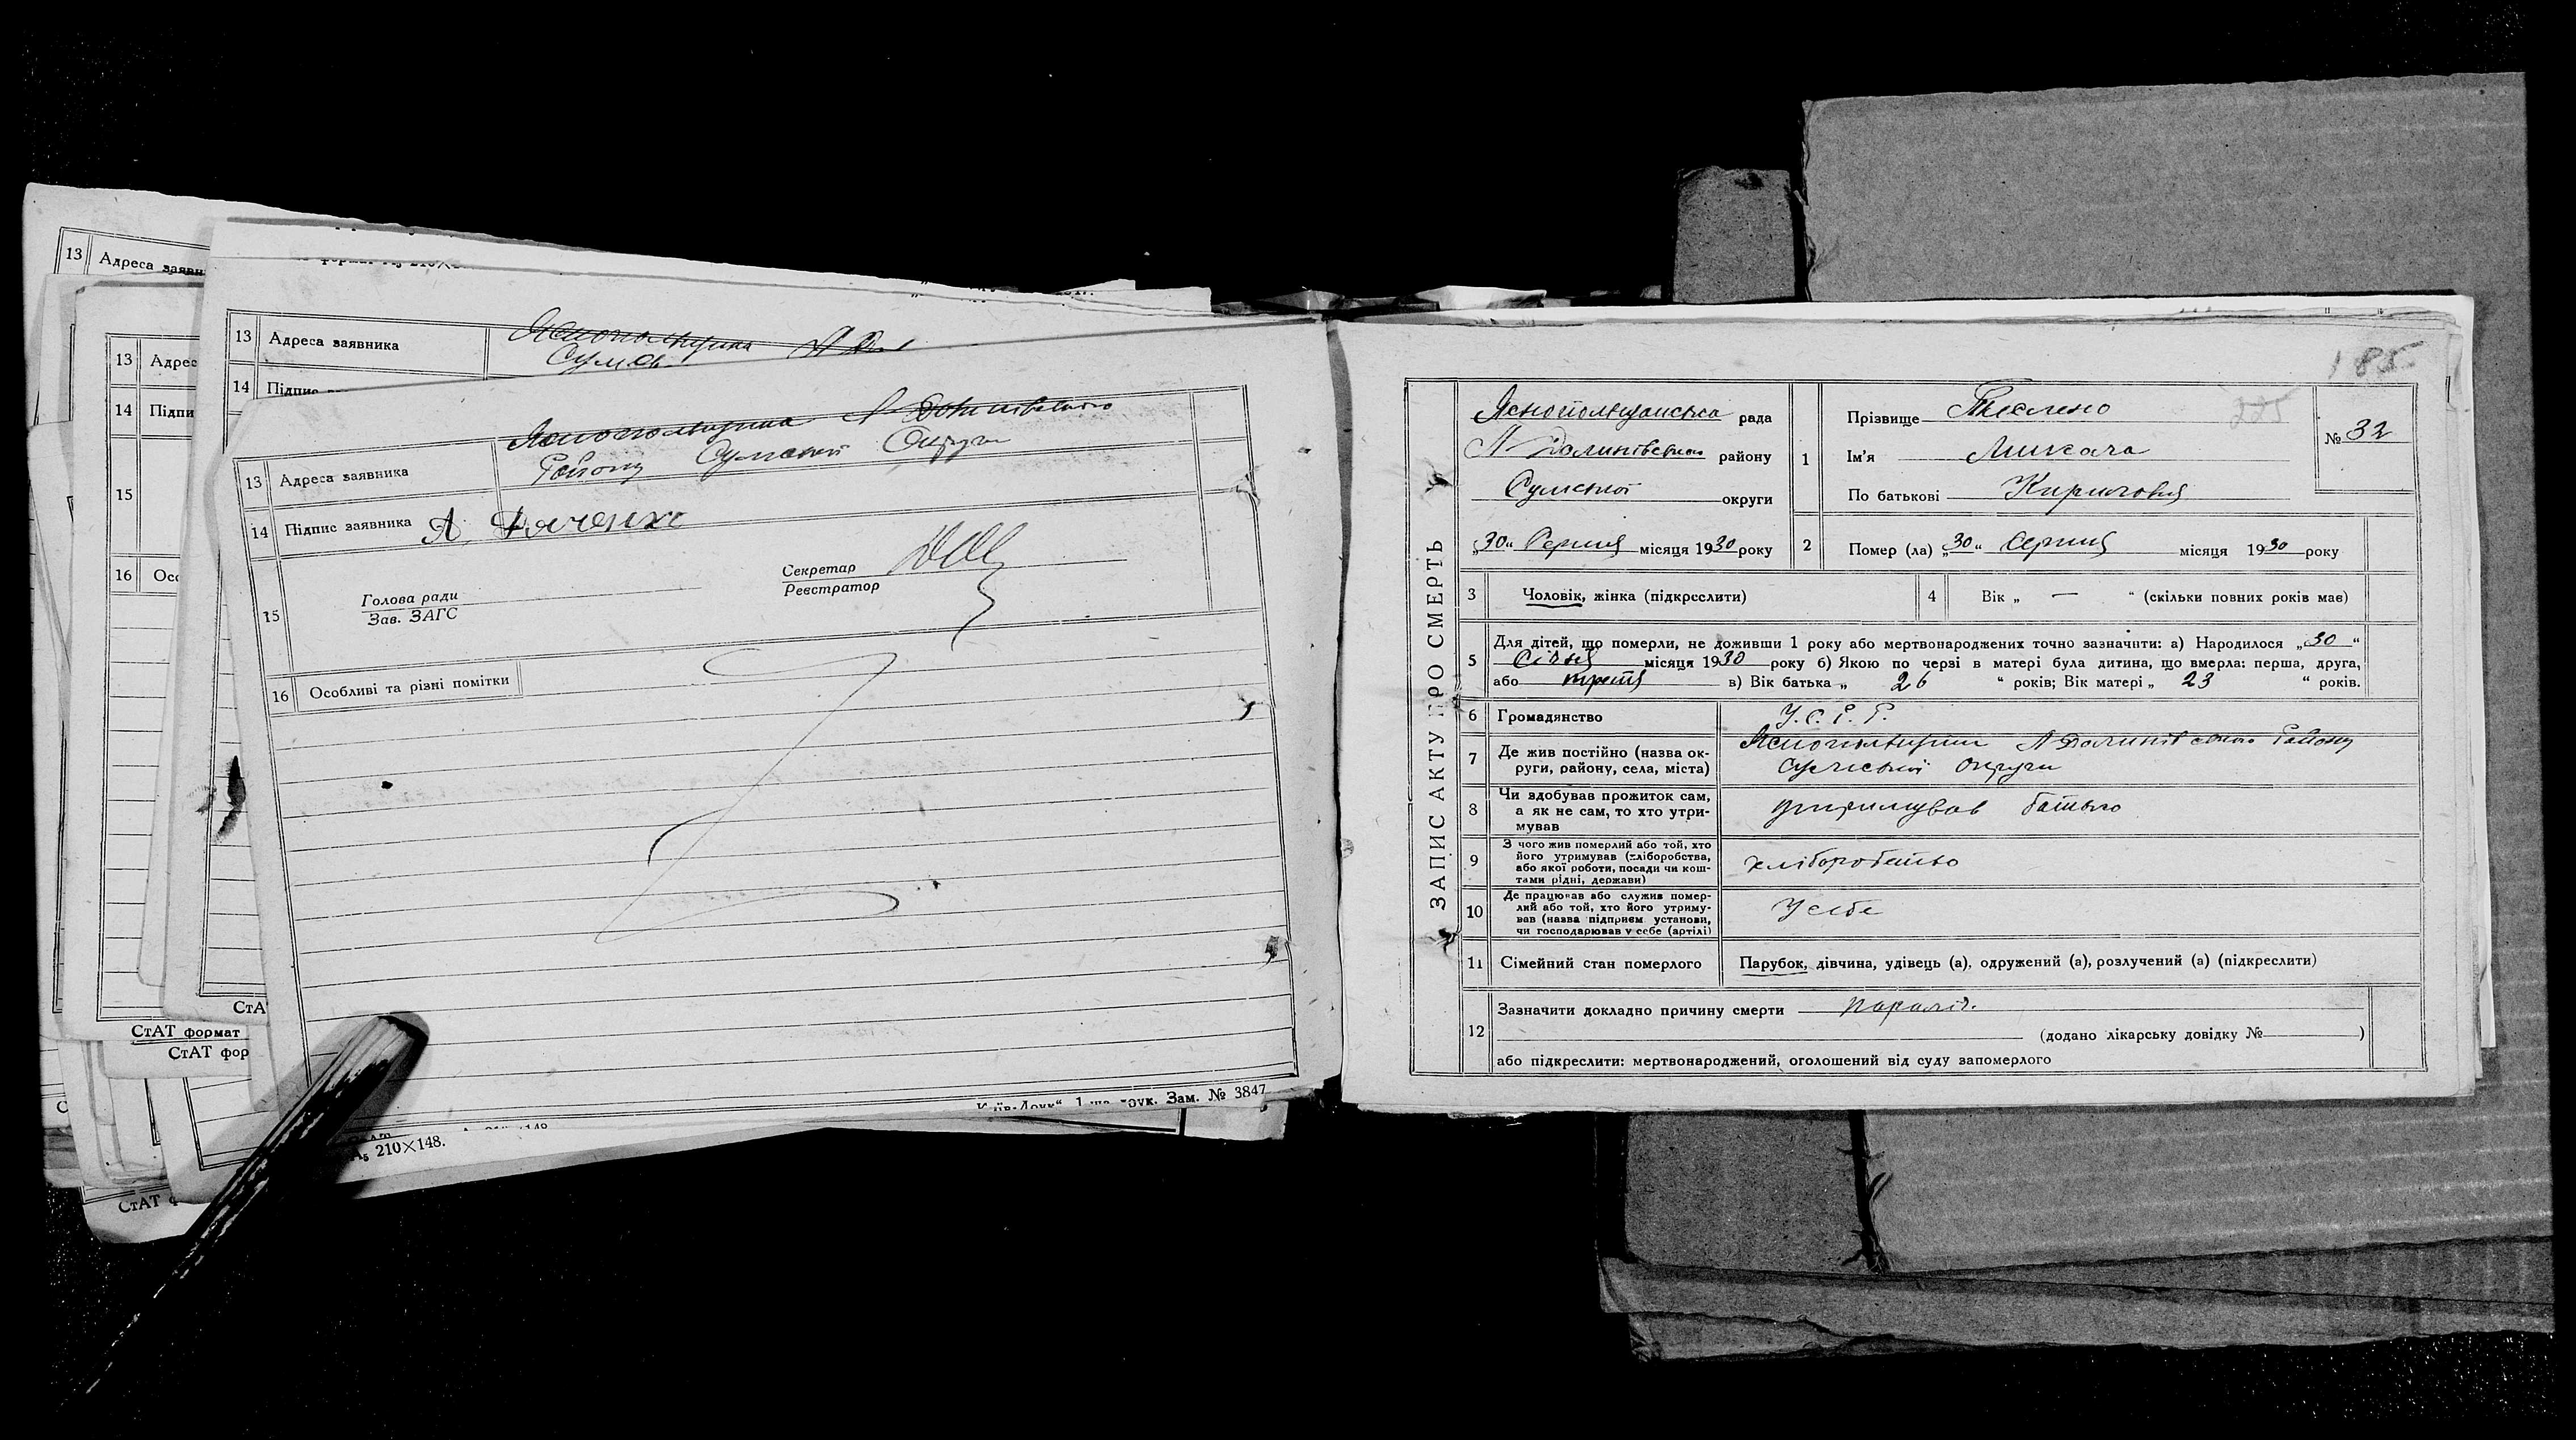 13 Адреса заявн
13 Адрес
14 Підпи
15
16 Осо
13 Адреса заявника Яснопольщина
Сумсь
14 Підпис
13 Адреса заявника Яснопольщина Л-Долинського
Району Сумської Округи
14 Підпис заявника А. Дяченко
15 Голова ради
Зав. ЗАГС
Секретар
Реєстратор
16 Особливі та різні помітки
СтА
СтАТ формат
СтАТ фор
Зам. № 3847
А₅ 210×148.
СтАТ ф
185
ЗАПИС АКТУ ПРО СМЕРТЬ
Яснопольщанська рада
Л-Долинівськ району
Сумської округи
„30“ Серпня місяця 1930 року
1 Прізвище
Ім'я Микола
По батькові Кирилович
№ 32
2 Помер (ла) „30“ Серпня місяця 1930 року
3 Чоловік, жінка (підкреслити)
4 Вік „ — “ (скільки повних років має)
5 Для дітей, що померли, не доживши 1 року або мертвонароджених точно зазначити: а) Народилося „30“
Січня місяця 1930 року б) Якою по черзі в матері була дитина, що вмерла: перша, друга,
або третя в) Вік батька „ 26 “ років; Вік матері „ 23 “ років.
6 Громадянство У.С.Р.Р.
7 Де жив постійно (назва ок-
руги, району, села, міста)
Яснопольщина Л-Долинівського Району
Сумської округи
8 Чи здобував прожиток сам,
а як не сам, то хто утри-
мував
утримував батько
9 З чого жив померлий або той, хто
його утримував (хліборобства,
або якої роботи, посади чи кош-
тами рідні, держави)
хліборобство
10 Де працював або служив помер-
лий або той, хто його утриму-
вав (назва підприєм. установи,
чи господарював у себе (артілі)
У себе
11 Сімейний стан померлого Парубок, дівчина, удівець (а), одружений (а), розлучений (а) (підкреслити)
12 Зазначити докладно причину смерти параліч.
(додано лікарську довідку № )
або підкреслити: мертвонароджений, оголошений від суду запомерлого